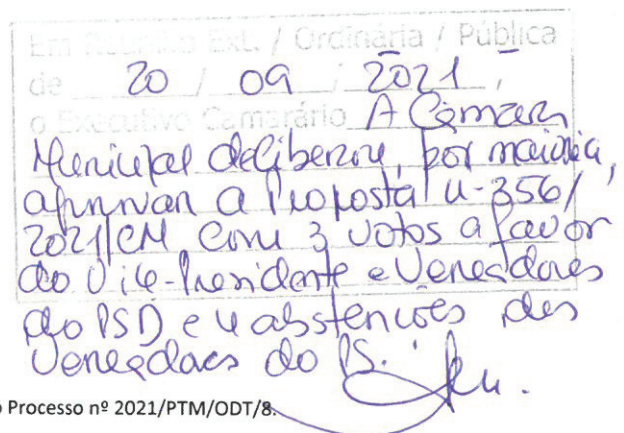 Em Reunião Ext. / Ordinária / Pública
de 20 / 09 / 2021,
o Executivo Camarário A Câmara
Municipal deliberou, por maioria,
aprovar a Proposta nº 356/
2021/CM com 3 votos a favor
do Vice-Presidente e Vereadores
do PSD e 4 abstenções dos
Vereadores do PS.
o Processo nº 2021/PTM/ODT/8.